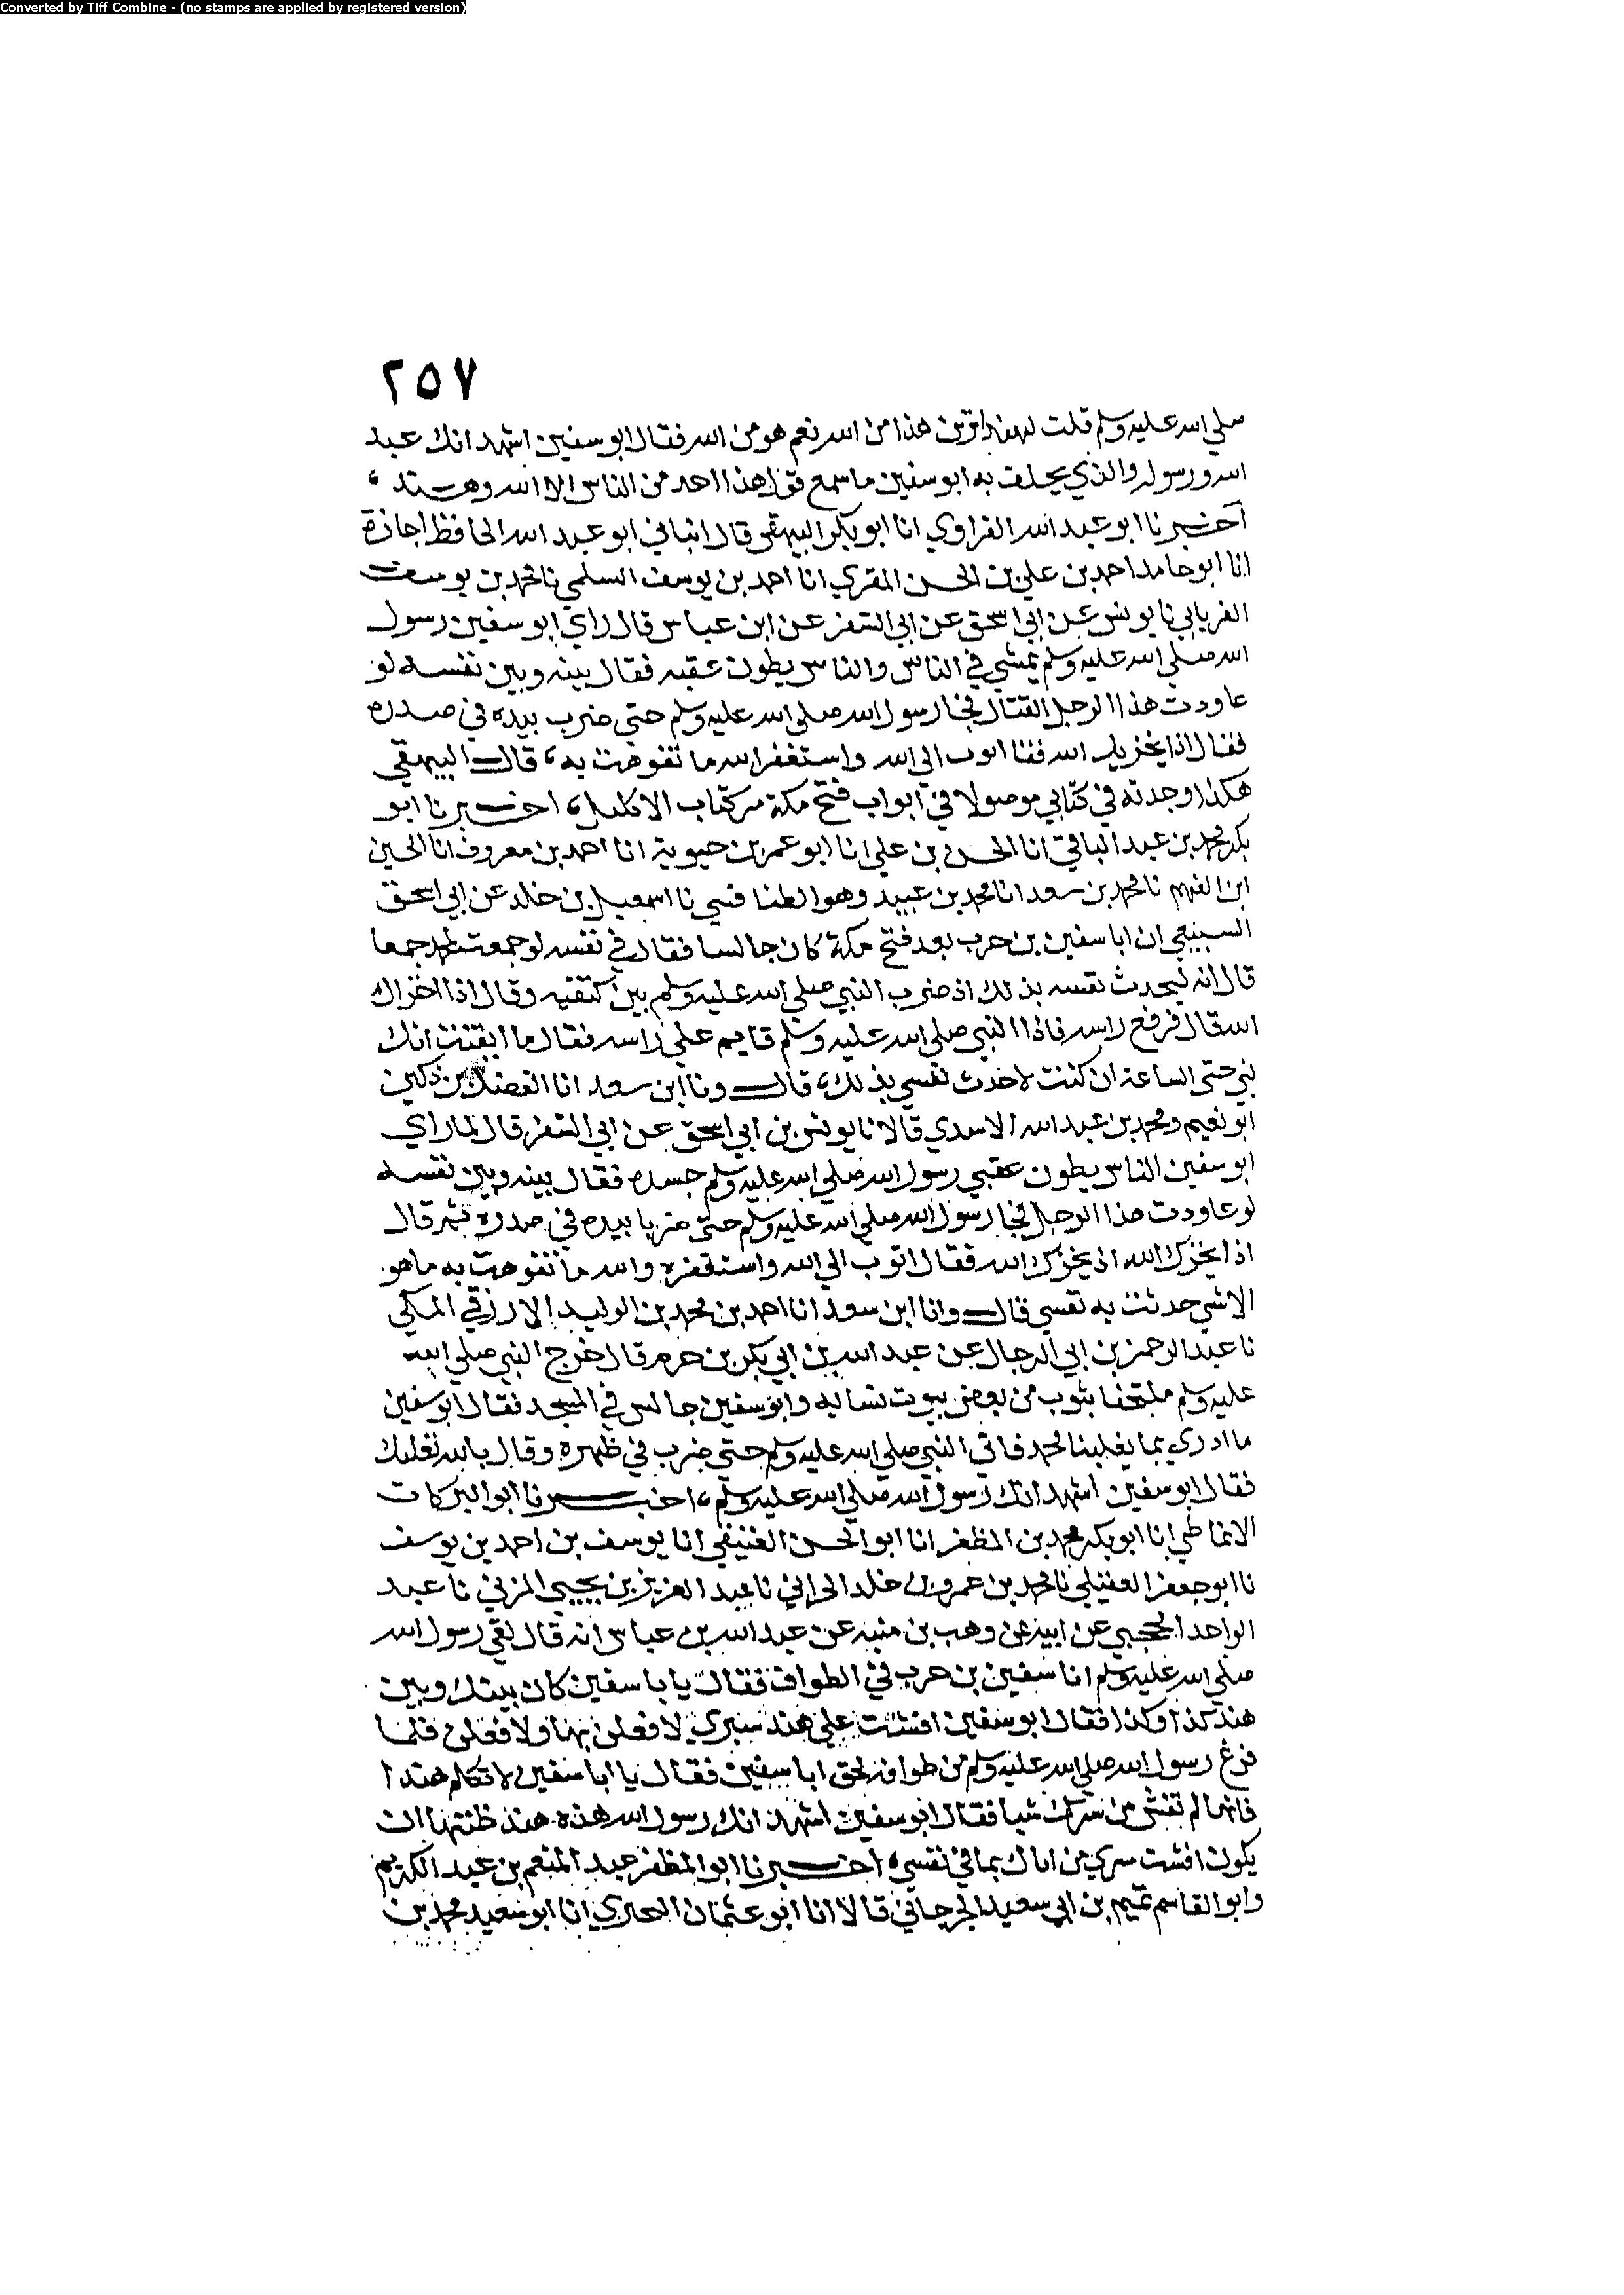 Converted by Tiff Combine - (no stamps are applied by registered version)
٢٥٧
صلي الله عليه وسلم قلت لهند اترين هذا من الله نعم هو من الله فقال ابو سفين اشهد انك عبد
الله ورسوله والذي يحلف به ابو سفين ما سمع قولي هذا احد من الناس الا الله وهند ،
اخبرنا ابو عبد الله الفراوي انا ابو بكر البيهقي قال انباني ابو عبد الله الحافظ اجازة
انا ابو حامد احمد بن علي بن الحسن المقري انا احمد بن يوسف السلمي نا محمد بن يوسف
الفريابي نا يونس عن ابي اسحق عن ابي السفر عن ابن عباس قال راي ابو سفين رسول
الله صلي الله عليه وسلم يمشي في الناس والناس يطون عقبه فقال بينه وبين نفسه لو
عاودت هذا الرجل القتال فجا رسول الله صلي الله عليه وسلم حتى ضرب بيده في صدره
فقال اذا يخزيك الله فقال اتوب الي الله واستغفر الله مما تفوهت به ، قال البيهقي
هكذا وجدته في كتابي موصولا في ابواب فتح مكة من كتاب الاكليل ، اخبرنا ابو
بكر محمد بن عبد الباقي انا الحسن بن علي انا ابو عمر بن حيوية انا احمد بن معروف انا الحسين
ابن الفهم نا محمد بن سعد انا محمد بن عبيد وهو الطنافسي نا اسمعيل بن خالد عن ابي اسحق
السبيعي ان ابا سفين بن حرب بعد فتح مكة كان جالسا فقال في نفسه لو جمعت لمحمد جمعا
قال انه ليحدث نفسه بذلك اذ ضرب النبي صلي الله عليه وسلم بين كتفيه وقال اذا اخزاك
الله قال فرفع راسه فاذا النبي صلي الله عليه وسلم قايم علي راسه فقال ما ايقنت انك
نبي حتى الساعة ان كنت لاحدث نفسي بذلك ، قال ونا ابن سعد انا الفضل بن دكين
ابو نعيم ومحمد بن عبد الله الاسدي قالا نا يونس بن ابي اسحق عن ابي السفر قال لما راي
ابو سفين الناس يطون عقبي رسول الله صلي الله عليه وسلم حسده فقال بينه وبين نفسه
لو عاودت هذا الرجل فجا رسول الله صلي الله عليه وسلم حتى ضربا بيده في صدره ثم قال
اذا يخزك الله اذ يخزك الله فقال اتوب الي الله واستغفره والله ما تفوهت به ما هو
الا شي حدثت به نفسي قال وانا ابن سعد انا احمد بن محمد بن الوليد الازرقي المكي
نا عبد الرحمن بن ابي الرجال عن عبد الله بن ابي بكر بن حزم قال خرج النبي صلي الله
عليه وسلم ملتحفا بثوب من بعض بيوت نسايه وابو سفين جالس في المسجد فقال ابو سفين
ما ادري بما يغلبنا محمد فاتي النبي صلي الله عليه وسلم حتي ضرب في ظهره وقال بالله نغلبك
فقال ابو سفين اشهد انك رسول الله صلي الله عليه وسلم ، اخبرنا ابو البركات
الانماطي انا ابو بكر محمد بن المظفر انا ابو الحسن العتيقي انا يوسف بن احمد بن يوسف
نا ابو جعفر العقيلي نا محمد بن عمرو بن خالد الحراني نا عبد العزيز بن يحيي المزني نا عبد
الواحد الحجبي عن ابيه عن وهب بن منبه عن عبد الله بن عباس انه قال لقي رسول الله
صلي الله عليه وسلم ابا سفين بن حرب في الطواف فقال يا با سفين كان بينك وبين
هند كذا وكذا فقال ابو سفين افشت علي هند سري لافعلن بها ولافعلن فلما
فرغ رسول الله صلي الله عليه وسلم من طوافه لحق ابا سفين فقال يا ابا سفين لا تكلم هندا
فانها لم تفش من سرك شيا فقال ابو سفين اشهد انك رسول الله هذه هند ظننتها ان
يكون افشت سري من انباك بما في نفسي ، اخبرنا ابو المظفر عبد المنعم بن عبد الكريم
وابو القاسم تميم بن ابي سعيد الجرجاني قالا انا ابو عثمان البحيري انا ابو سعيد محمد بن